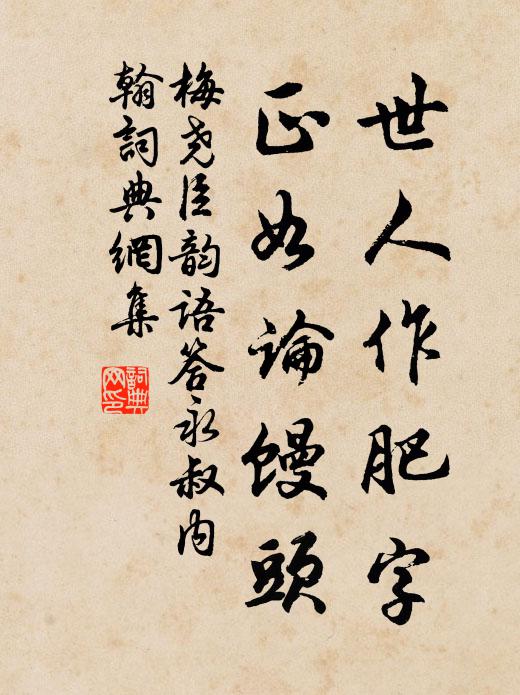 世人作肥字
正如論饅頭
梅尧臣韵語答永叔内
翰詞典網集
詞典
网印